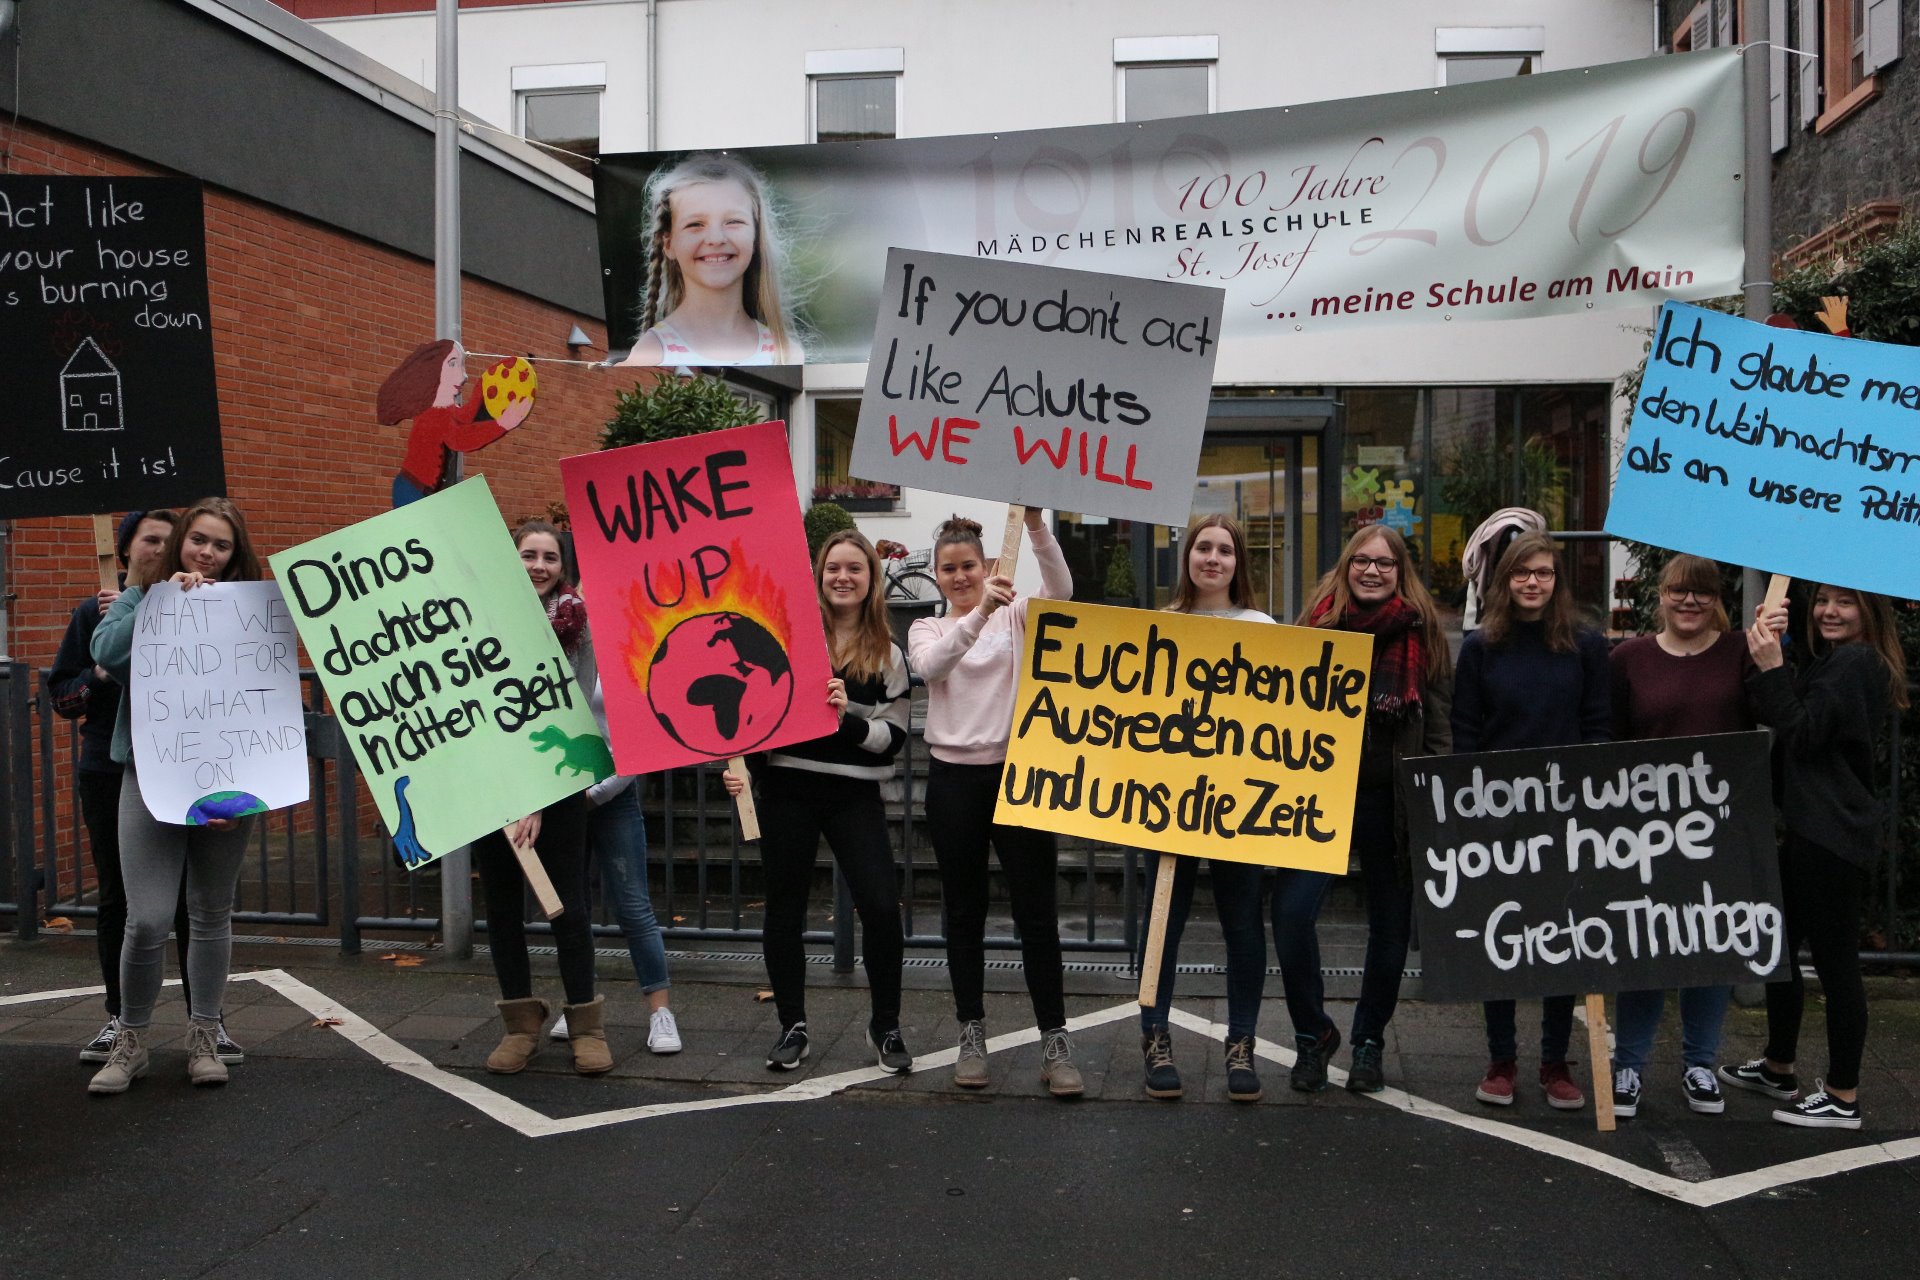 Act like
your house
s burning
down
Cause it is!
WHAT WE
STAND FOR
IS WHAT
WE STAND
ON
Dinos
dachten
auch sie
hätten Zeit
WAKE
UP
1919 2019
100 Jahre
MÄDCHENREALSCHULE
St. Josef
... meine Schule am Main
If you don't act
Like Adults
WE WILL
Euch gehen die
Ausreden aus
und uns die Zeit
"I don't want
your hope"
-Greta Thunberg
Ich glaube me
den Weihnachtsm
als an unsere Politi